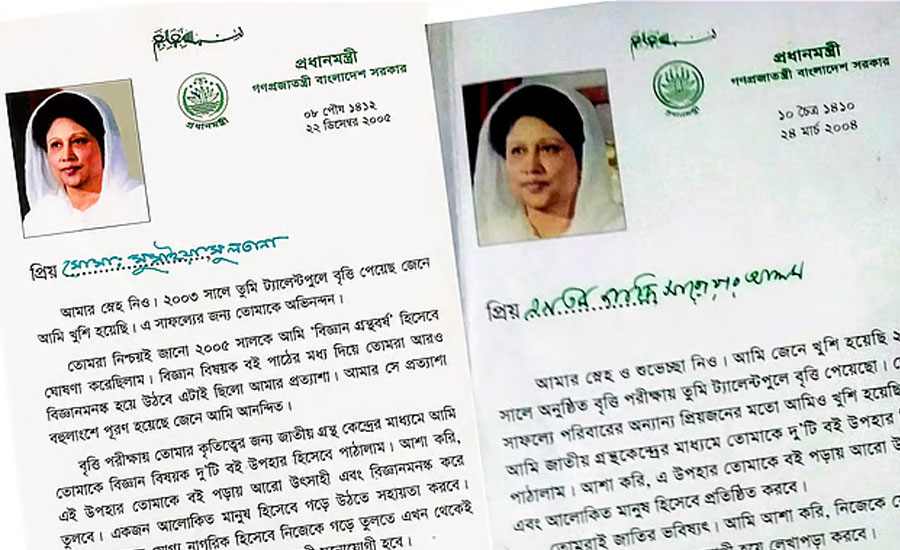 প্রধানমন্ত্রী
গণপ্রজাতন্ত্রী বাংলাদেশ সরকার
প্রধানমন্ত্রী
০৮ পৌষ ১৪১২
২২ ডিসেম্বর ২০০৫
প্রিয় মোসাঃ সুমাইয়া সুলতানা
আমার স্নেহ নিও। ২০০৩ সালে তুমি ট্যালেন্টপুলে বৃত্তি পেয়েছ জেনে
আমি খুশি হয়েছি। এ সাফল্যের জন্য তোমাকে অভিনন্দন।
তোমরা নিশ্চয়ই জানো ২০০৫ সালকে আমি ‘বিজ্ঞান গ্রন্থবর্ষ’ হিসেবে
ঘোষণা করেছিলাম। বিজ্ঞান বিষয়ক বই পাঠের মধ্য দিয়ে তোমরা আরও
বিজ্ঞানমনস্ক হয়ে উঠবে এটাই ছিলো আমার প্রত্যাশা। আমার সে প্রত্যাশা
বহুলাংশে পূরণ হয়েছে জেনে আমি আনন্দিত।
বৃত্তি পরীক্ষায় তোমার কৃতিত্বের জন্য জাতীয় গ্রন্থ কেন্দ্রের মাধ্যমে আমি
তোমাকে বিজ্ঞান বিষয়ক দু'টি বই উপহার হিসেবে পাঠালাম। আশা করি,
এই উপহার তোমাকে বই পড়ায় আরো উৎসাহী এবং বিজ্ঞানমনস্ক করে
তুলবে। একজন আলোকিত মানুষ হিসেবে গড়ে উঠতে সহায়তা করবে।
যোগ্য নাগরিক হিসেবে নিজেকে গড়ে তুলতে এখন থেকেই
মনোযোগী হবে।
প্রধানমন্ত্রী
গণপ্রজাতন্ত্রী বাংলাদেশ সরকার
প্রধানমন্ত্রী
১০ চৈত্র ১৪১০
২৪ মার্চ ২০০৪
প্রিয়
আমার স্নেহ ও শুভেচ্ছা নিও। আমি জেনে খুশি হয়েছি
সালে অনুষ্ঠিত বৃত্তি পরীক্ষায় তুমি ট্যালেন্টপুলে বৃত্তি পেয়েছো।
সাফল্যে পরিবারের অন্যান্য প্রিয়জনের মতো আমিও খুশি হয়েছি
আমি জাতীয় গ্রন্থকেন্দ্রের মাধ্যমে তোমাকে দু'টি বই উপহার
পাঠালাম। আশা করি, এ উপহার তোমাকে বই পড়ায় আরো
এবং আলোকিত মানুষ হিসেবে প্রতিষ্ঠিত করবে।
তোমরাই জাতির ভবিষ্যৎ। আমি আশা করি, নিজেকে
হয়ে লেখাপড়া করবে।